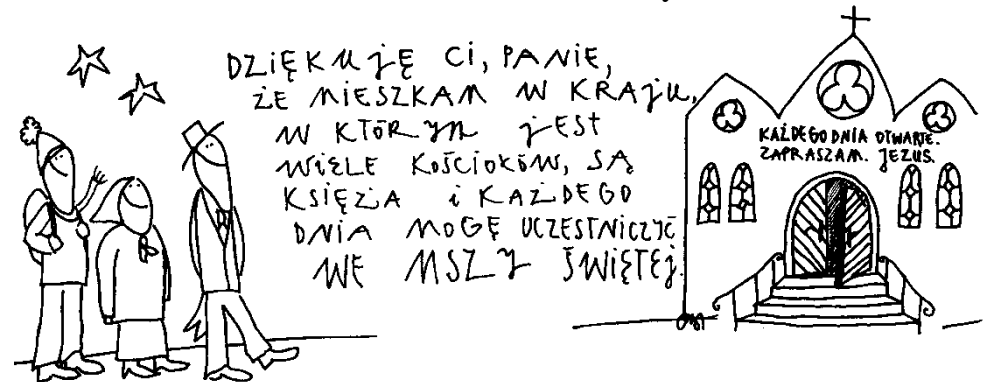 DZIĘKUJĘ CI, PANIE,
ŻE MIESZKAM W KRAJU,
W KTÓRYM JEST
WIELE KOŚCIOŁÓW, SĄ
KSIĘŻA i KAŻDEGO
DNIA MOGĘ UCZESTNICZYĆ
WE MSZY ŚWIĘTEJ.
KAŻDEGO DNIA OTWARTE.
ZAPRASZAM. JEZUS.